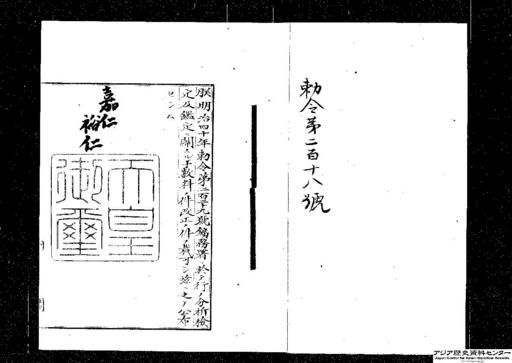 勅令第二百十八號
朕明治四十年勅令第二百二十九號稅務署ニ於テ行フ分析檢
定及鑑定ニ關スル手數料ノ件改正ノ件ヲ裁可シ茲ニ之ヲ公布
セシム
嘉仁
裕仁
天皇
御璽
アジア歴史資料センター
Japan Center for Asian Historical Records